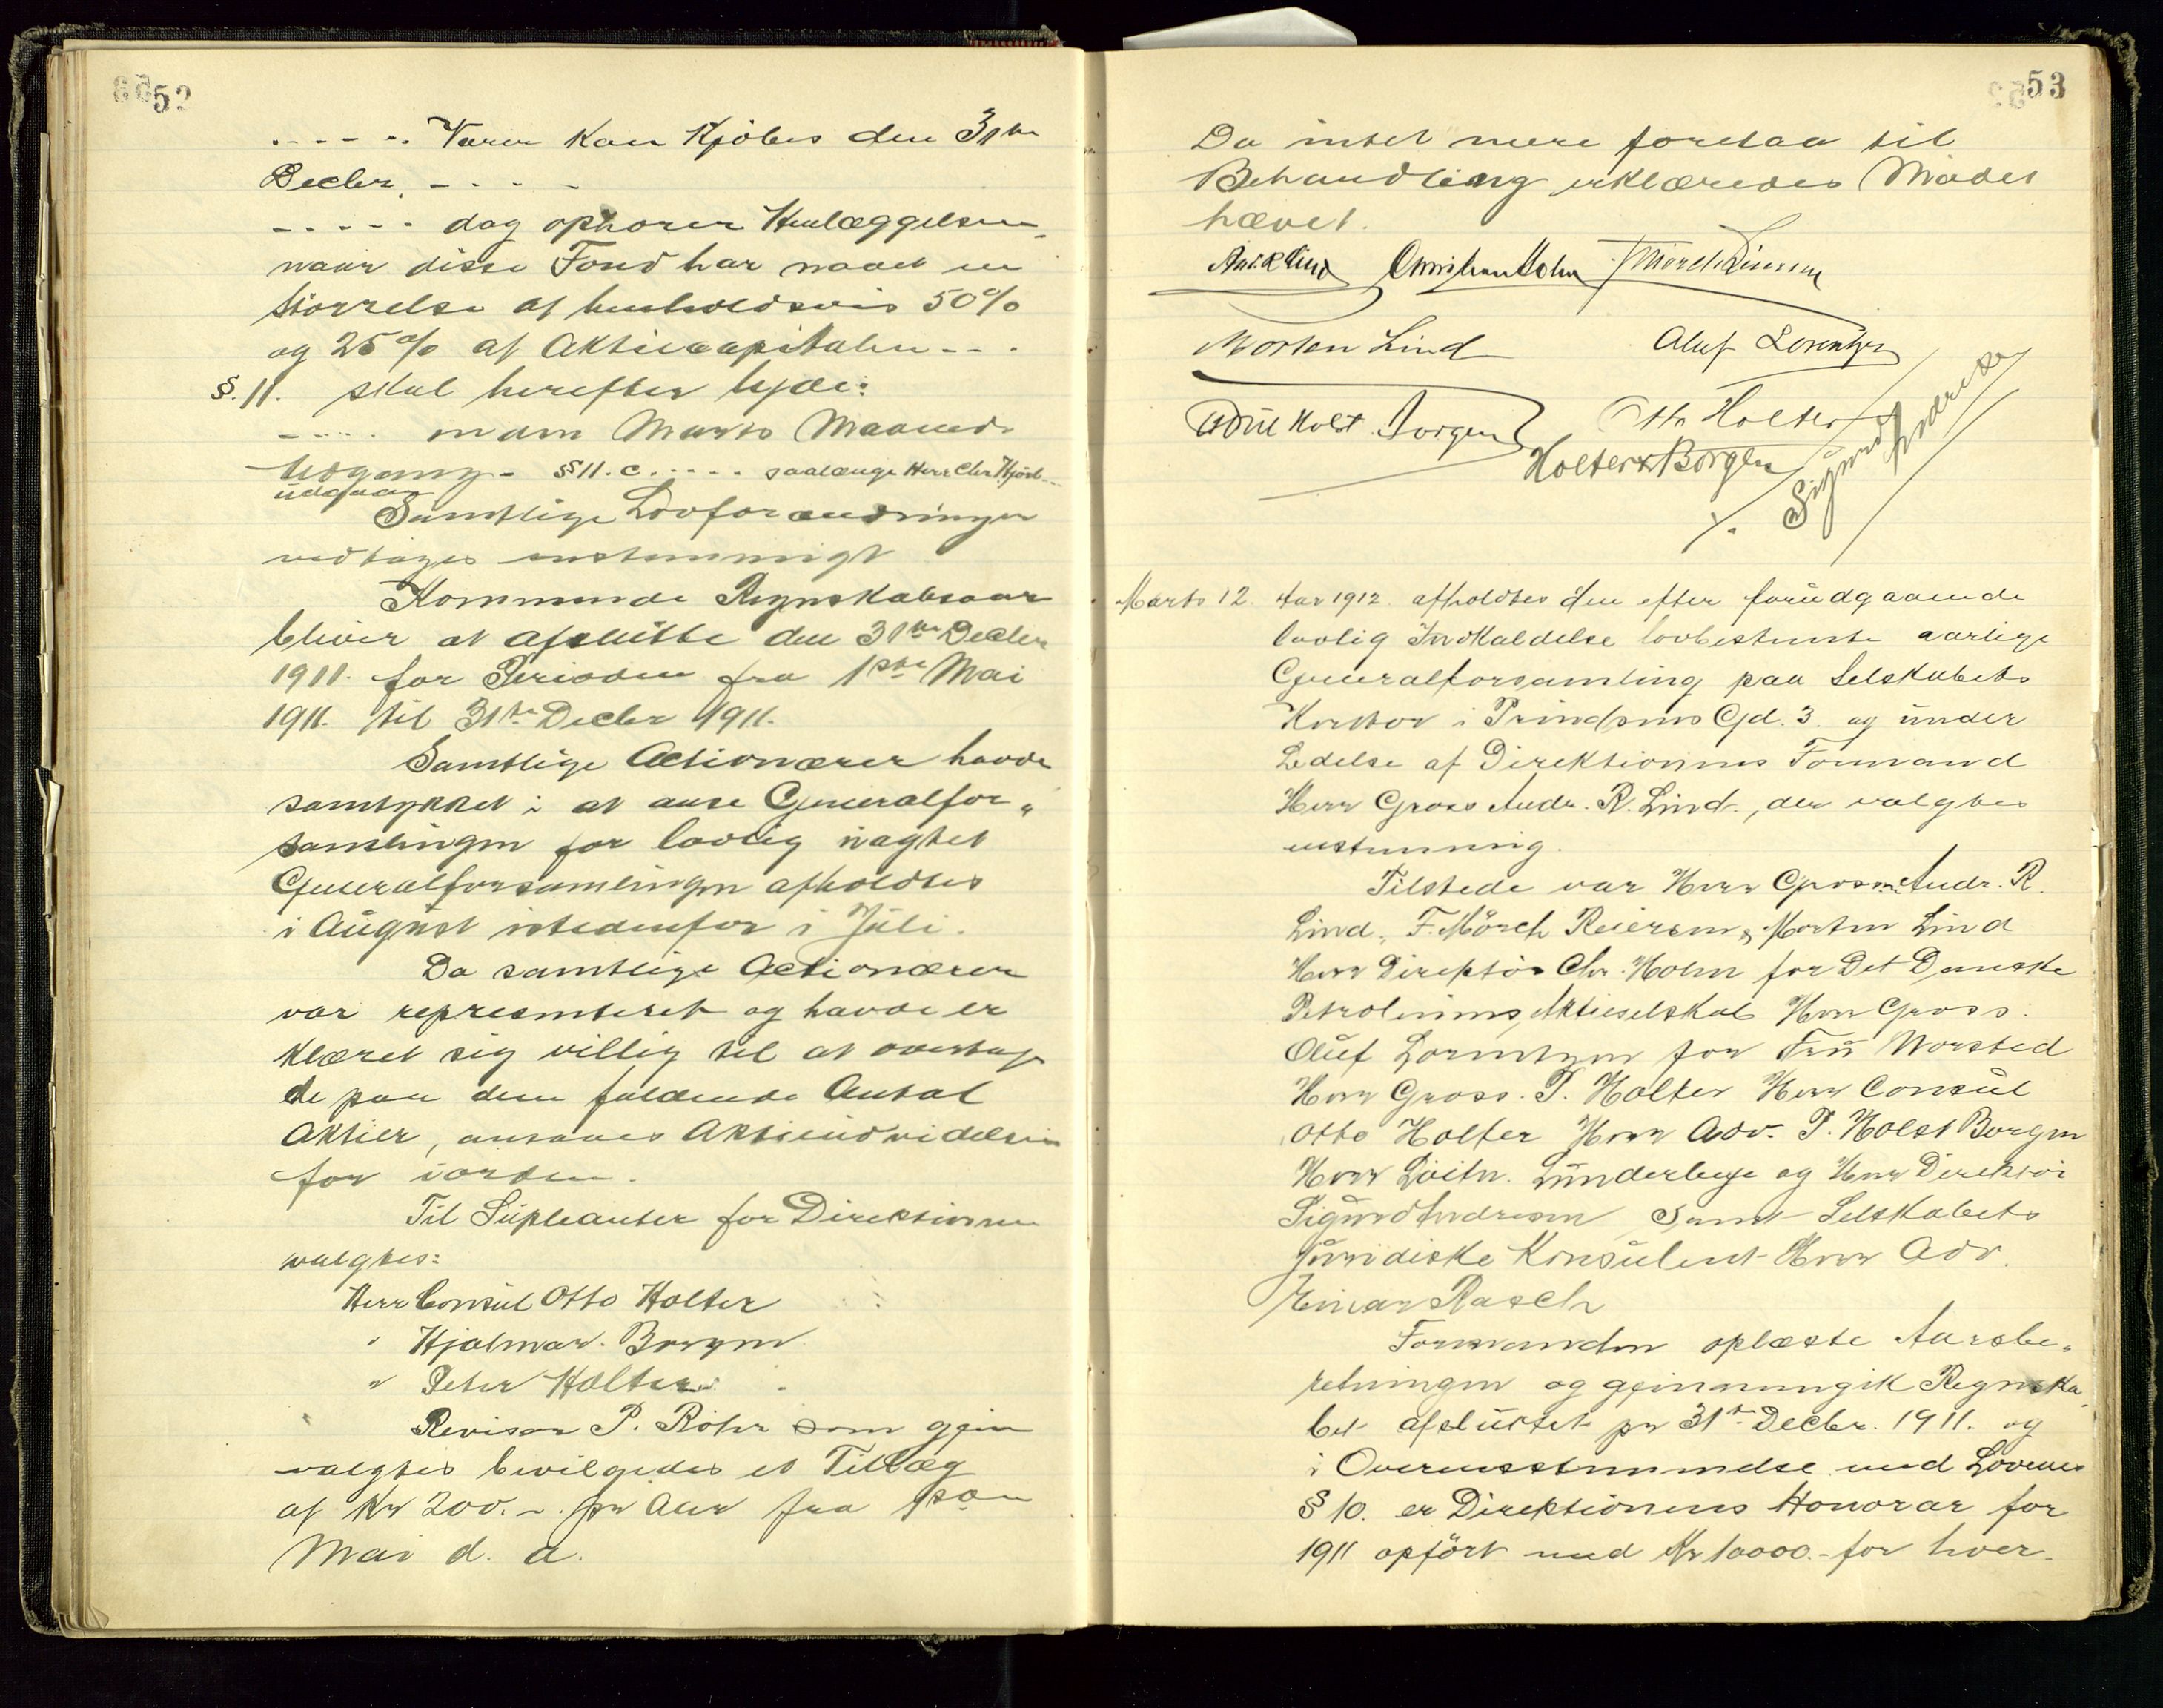 52
- - - - - Varer kan kjöbes den 31te
Decbr. - - - -
- - - - - dog ophorer Henlæggelsen,
naar disse Fond har naaet en
störrelse af henholdsvis 50%
og 25% af Aktiecapitalen - - -
§. 11. skal herefter lyde:
- - - - inden Marts Maaneds
Udgang - §§ 11. c. - - - - saalænge Herr Chr. Hjörl- -
udgaar
Samtlige Lovforandringer
vedtages enstemmigt
Kommende Regnskabsaar
bliver at afslutte den 31te Decbr
1911. for Perioden fra 1ste Mai
1911. til 31te Decbr 1911.
Samtlige Actionærer havde
samtykket i at anse Generalfor„
samlingen for lovlig uagtet
Generalforsamlingen afholdtes
i August istedenfor i Juli.
Da samtlige Actionærer
var representeret og havde er
klæret sig villig til at overtage
de paa dem faldende Antal
Aktier, ansaaes Aktieudvidelsen
for iorden.
Til Supleanter for Direktionen
valgtes:
Herr Consul Otto Holter
" Hjalmar Borgen
" Peter Holter
Revisor P. Röhr som gjen
valgtes bevilgedes et Tillæg
af Kr 200.- pr Aar fra 1ste
Mai d. a.
53
Da intet mere forelaa til
Behandling erklæredes Mödet
hævet.
Andr. R Lind Christian Holm F Mörch Reiersen
Morten Lind Oluf Lorentzen
Holst Borgen Otto Holter
Holter & Borgen
Sigurd Andresen
Marts 12. Aar 1912. afholdtes den efter forudgaaende
lovlig Indkaldelse lovbestemte aarlige
Generalforsamling paa Selskabets
Kontor i Prindsens Gd. 3. og under
Ledelse af Direktionens Formand
Herr Gross Andr. R. Lind., der valgtes
enstemmig.
Tilstede var Herr Grosserer Andr. R.
Lind, F. Mörch Reiersen, Morten Lind
Herr Direktör Chr. Holm for Det Danske
Petroleums Aktieselskab Herr Gross.
Oluf Lorentzen for Fru Worsted
Herr Gross. P. Holter Herr Consul
Otto Holter Herr Adv. P. Holst Borgen
Herr Löitn. Lunderbye og Herr Direktör
Sigurd Andresen samt Selskabets
juridiske Konsulent Herr Adv.
Einar Rasch
Formanden oplæste Aarsbe„
retningen og gjennemgik Regnska
bet afsluttet pr 31te Decbr. 1911. og
i Overensstemmelse med Lovenes
§ 10. er Direktionens Honorar for
1911 opfört med Kr 10000.- for hver.